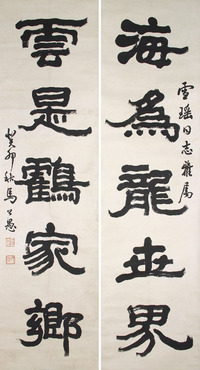 海為龍世界
雪瑤同志雅屬
雲是鶴家鄉
癸卯秋馬公愚